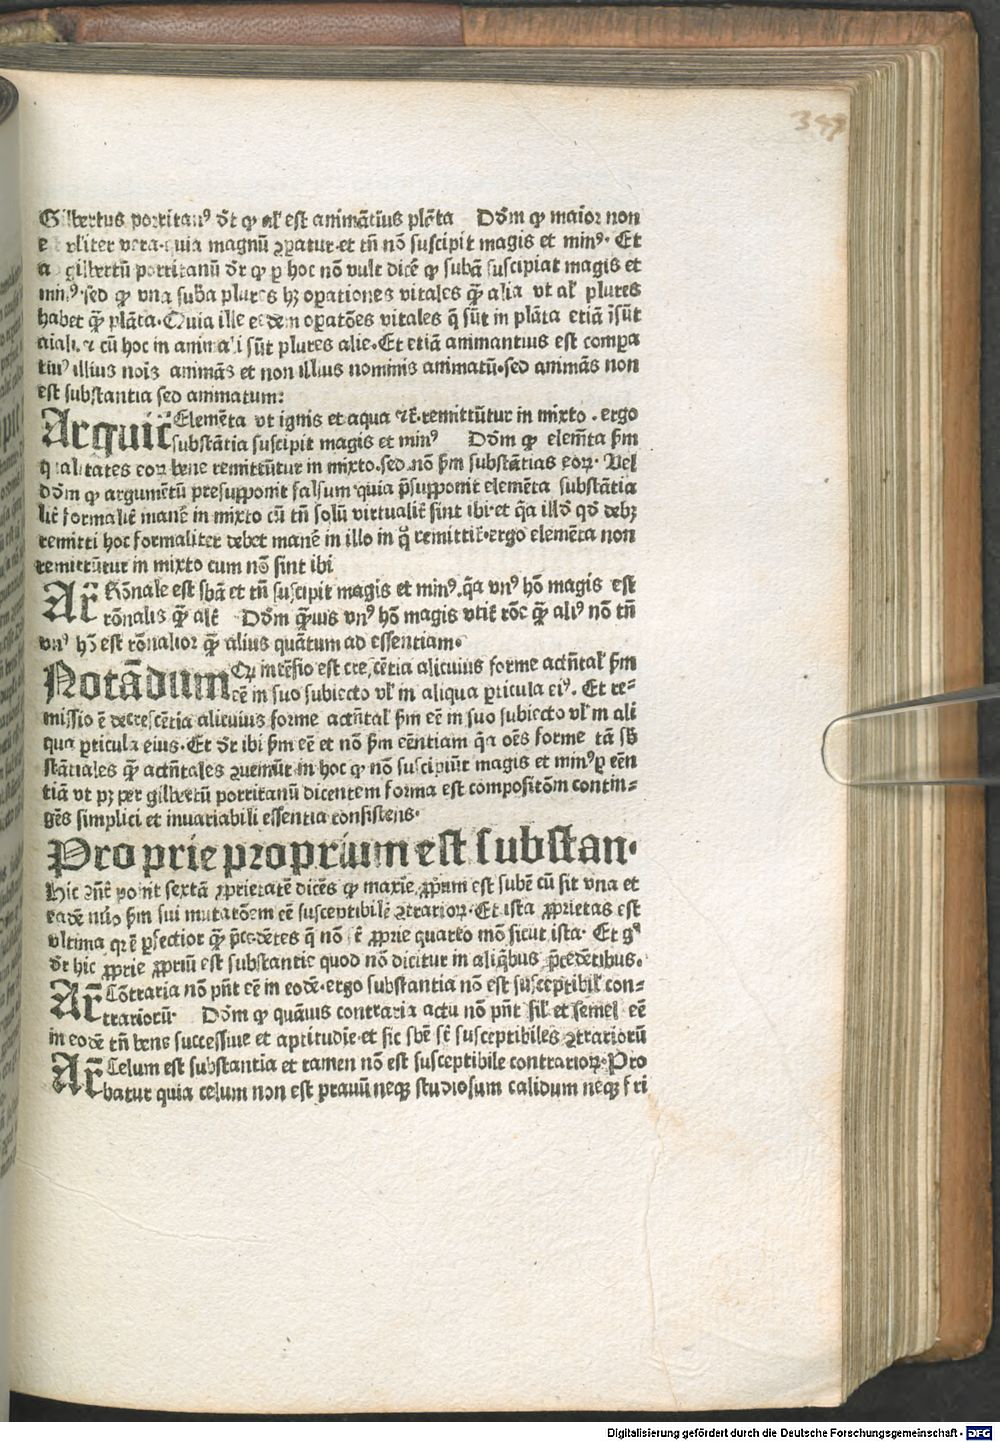 Gilbertus porritanꝰ dr̄t ꝙ aĺ est animātiꝰ plāta Dōm ꝙ maior non
e vĺiter vera quia magnū ꝯparatur et tn̄ nō suscipit magis et minꝰ. Et
a gilbertū porritanū dr̄ ꝙ ꝑ hoc nō vult dicē ꝙ subā suscipiat magis et
minꝰ sed ꝙ vna subā plures hꝫ oꝑationes vitales ꝙ̄ alia vt aĺ plures
habet ꝙ̄ plāta. Quia ille eedem oꝑatōes vitales q̄ sūt in plāta etiā īsūt
aiali ⁊ cū hoc in animali sūt plures alie. Et etiā animantius est compa
tiuꝰ illius nois animās et non illius nominis animatū. sed animās non
est substantia sed animatum:
Arguit̄ Elemēta vt ignis et aqua ⁊c̄. remittūtur in mixto . ergo
substātia suscipit magis et minꝰ Dōm ꝙ elem̄ta ẜm
qualitates eoꝝ bene remittūtur in mixto. sed nō ẜm substātias eoꝝ. Vel
dōm ꝙ argumētū presupponit falsum quia p̄supponit elemēta substātia
lit̄ formalit̄ manē in mixto cū tn̄ solū virtualit̄ sint ibi et q̄a illd̄ qd̄ debꝫ
remitti hoc formaliter debet manē in illo in q̊ remittit̄. ergo elemēta non
remittūtur in mixto cum nō sint ibi
Ar̄ Rōnale est sb̄a et tn̄ suscipit magis et minꝰ. q̄a vnꝰ hō magis est
rōnalis ꝙ̄ alt̄ Dōm ꝙ̄uis vnꝰ hō magis vtit̄ rōe ꝙ̄ aliꝰ nō tn̄
vnꝰ hō est rōnalior ꝙ̄ alius quātum ad essentiam.
Notādum Ꝙ intēsio est crescētia alicuius forme accn̄tal̄ ẜm
eē in suo subiecto vĺ in aliqua ꝑticula eiꝰ. Et re-
missio ē decrescētia alicuius forme accn̄tal̄ ẜm eē in suo subiecto vĺ in ali
qua ꝑticula eius. Et dr̄ ibi ẜm eē et nō ẜm eēntiam q̄a oēs forme tā sb̄
stātiales ꝙ̄ accn̄tales ꝯueniūt in hoc ꝙ nō suscipiūt magis et minꝰ ꝑ eēn
tiā vt pꝫ per gilbertū porritanū dicentem forma est compositōm contin-
gēs simplici et inuariabili essentia consistens.
Proprie proprium est substan.
Hic ꝯn̄t̄ ponit sextā ꝓprietatē dicēs ꝙ maxīe ꝓprium est subē cū sit vna et
eadē nūo ẜm sui mutatōem eē susceptibilē ꝯtrarioꝝ. Et ista ꝓprietas est
vltima qr ē ꝑfectior ꝙ̄ p̄cedētes q̄ nō ꝓprie quarto mō sicut ista. Et
dr̄ hic ꝓprie ꝓpriū est substantie quod nō dicitur in aliq̊bus p̄cedētibus.
Ar̄ Cōtraria nō pn̄t eē in eodē. ergo substantia nō est susceptibil̄ con-
trariorū. Dōm ꝙ quāuis contraria actu nō pn̄t sil̄ et semel eē
in eodē tn̄ bene successiue et aptitudīe et sic sb̄e st̄ susceptibiles ꝯtrariorū
Ar̄ Celum est substantia et tamen nō est susceptibile contrarioꝝ. Pro
batur quia celum non est prauū neqꝫ studiosum calidum neqꝫ fri
Digitalisierung gefördert durch die Deutsche Forschungsgemeinschaft - DFG